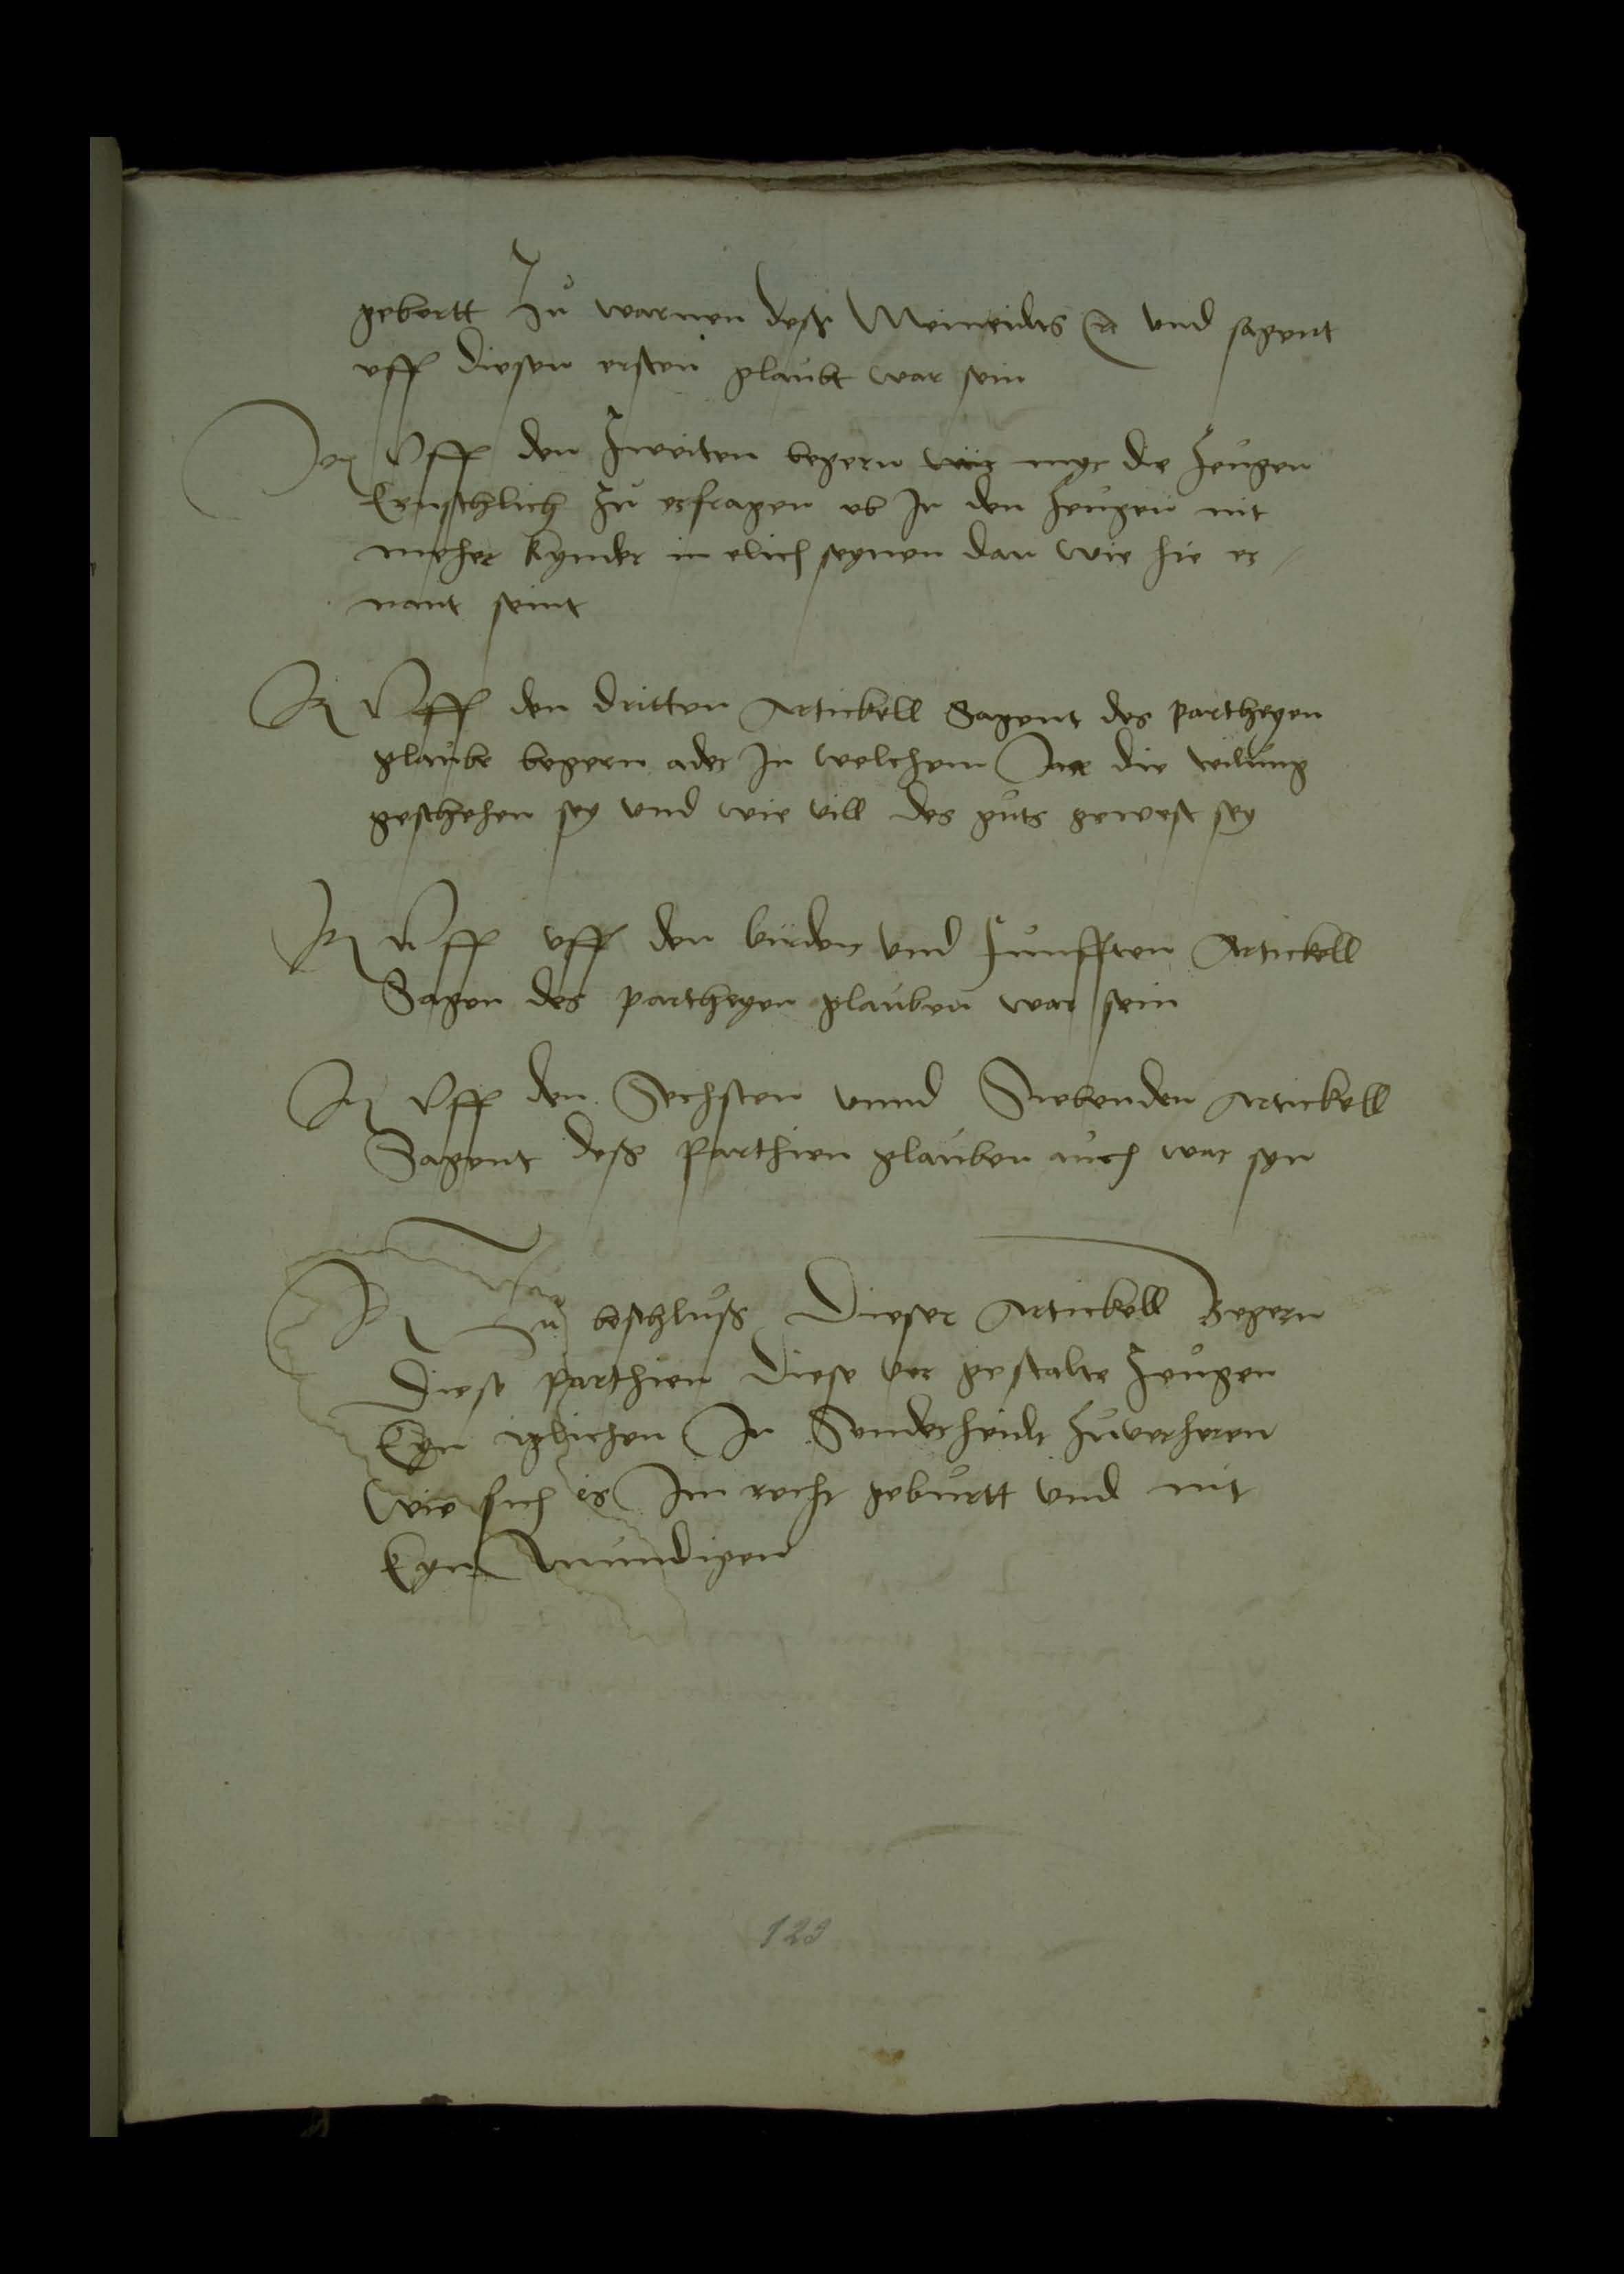 gebortt Zu warnen deß Meineidts ꝛc vnd sagent
vff diesen ersten glaubt war sein
Jt Vff den Zweiten begern wir myr die Zeugen
Ernsthlich Zu erfragen ob Jn den Zeugen nit
meher kynder in elich seynen dan wie hie er
nant seint
Jt Vff den dritten Artickell Sagent des partheyen
glaube begern ader Jn welchem Jar die teilung
gesthehen sey vnd wie vill des guts gewest sey
Jt Vff vff den virden vnd funfften Artickell
Sagen des partheyen glauben war sein
Jt Vff den Sechsten vnnd Siebenden Artickell
Sagent deß Parthien glauben auch war syn
Jt Zu beschluß Dieser Artickell Begern
Diese parthien Diese vor gestalte Zeugen
Eyn iglichen Jn Sonderheidt Zuverhoren
Wie sich es Jm recht geburtt vnd nit
Eyn mundigen
123